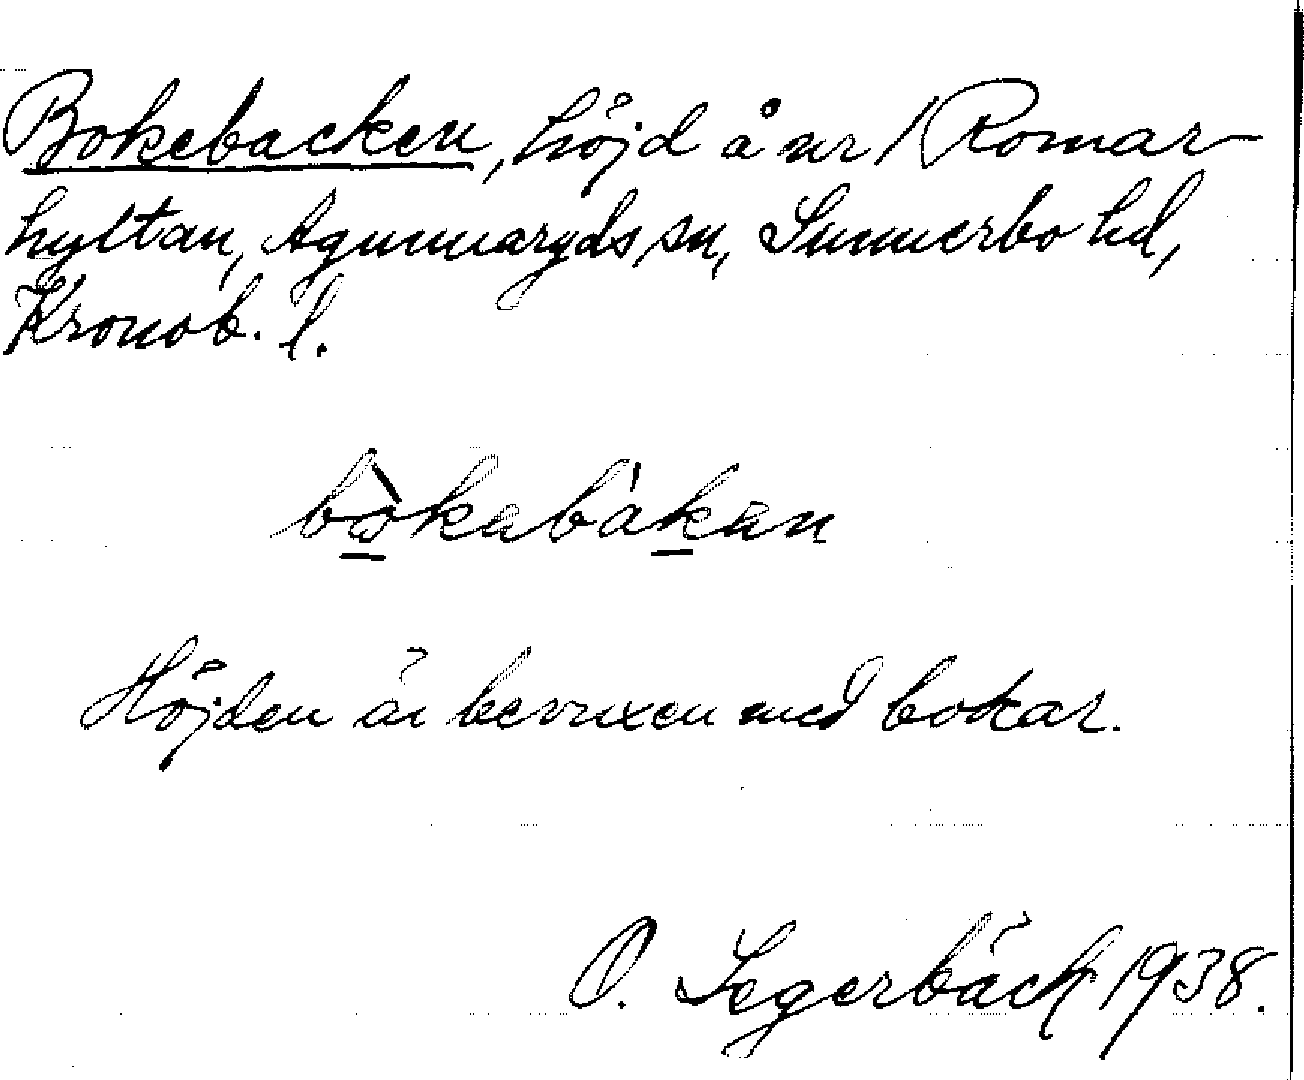 Bokebacken, höjd å nr 1 Romar-
hyltan, Agunnaryds sn, Sunnerbo hd,
Kronob. l.
bòkabákan
Höjden är bevuxen med bokar.
O. Segerbäck 1938.